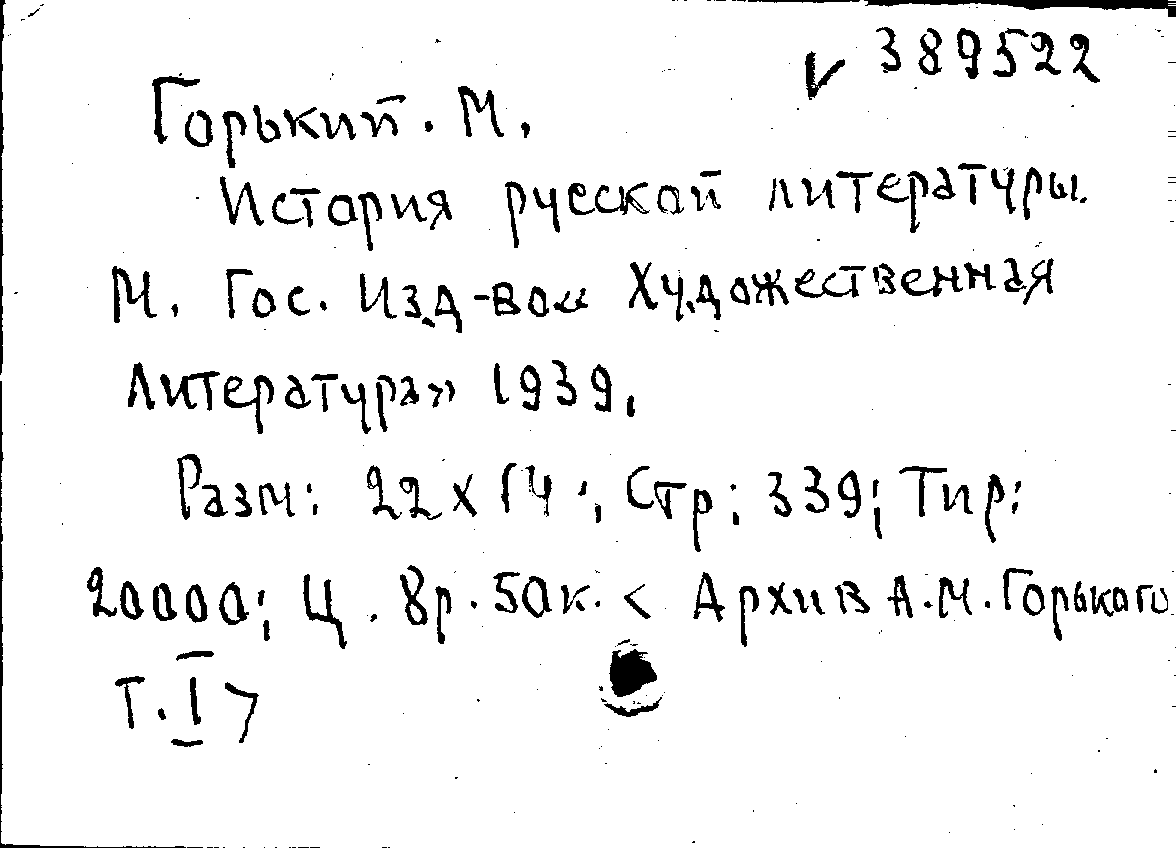 ✓ 389522
Горький. М.
История русской литературы.
М. Гос. Изд-во „Художественная
Литература» 1939.
Разм: 22 x 14 ; Стр; 339; Тир:
20000; Ц. 8р. 50к. < Архив А.М. Горького
т. I >